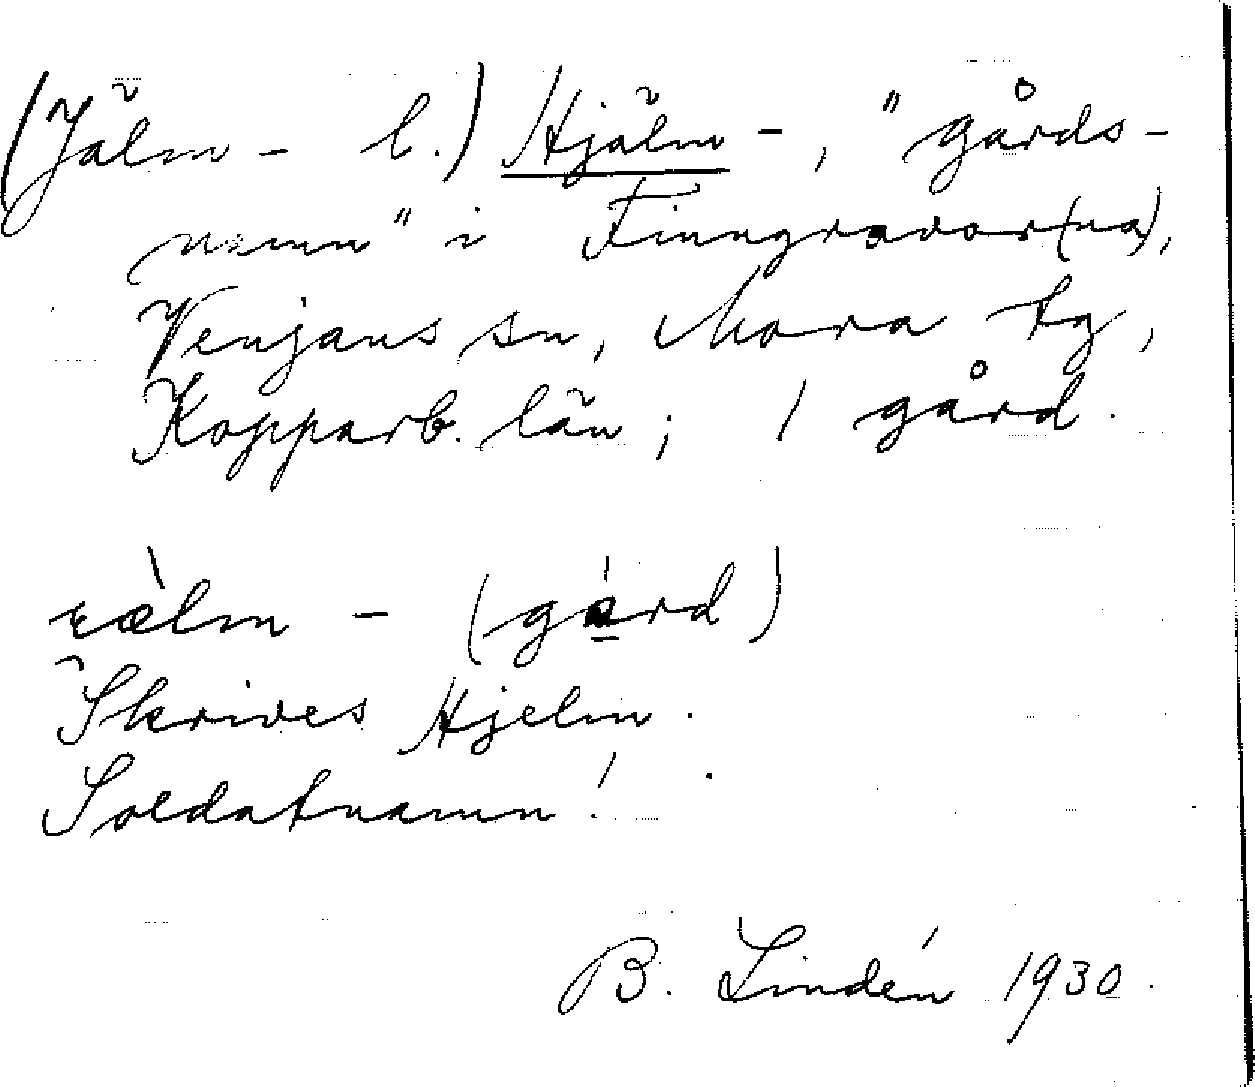 (Jälm- l.) Hjälm-, "gårds-
namn" i Finngravor(na),
Venjans sn, Mora tg,
Kopparb. län; 1 gård.
ɛ̀lm - (gård)
Skrives Hjelm.
Soldatnamn!
B. Lindén 1930.